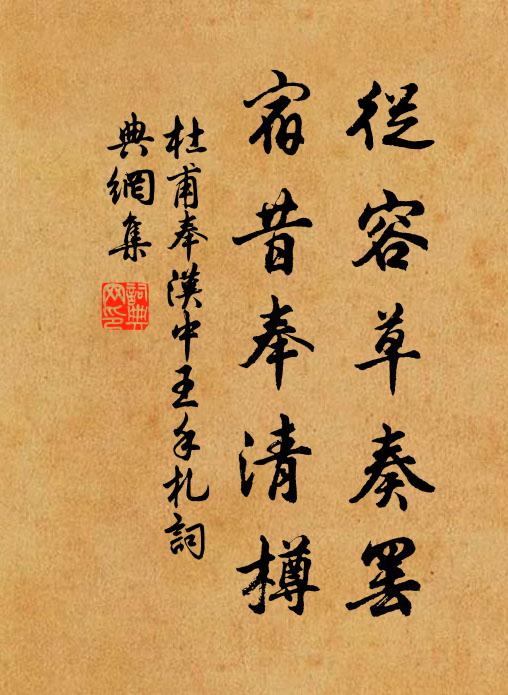 從容草奏罷
宿昔奉清樽
杜甫奉漢中王手札詞
典網集
詞典
网印